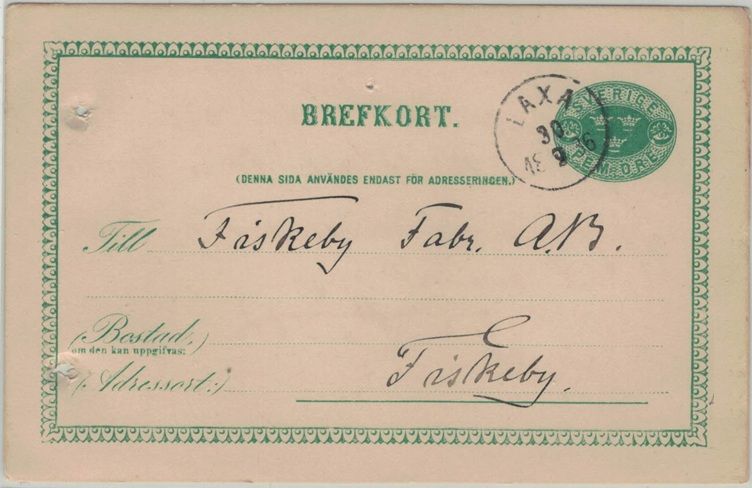 SVERIGE
FEM ÖRE
LAXÅ
30
18 9 86
BREFKORT.
(DENNA SIDA ANVÄNDES ENDAST FÖR ADRESSERINGEN.)
Till Fiskeby Fabr. A.B.
(Bostad,)
om den kan uppgifvas:
(Adressort:) Fiskeby.